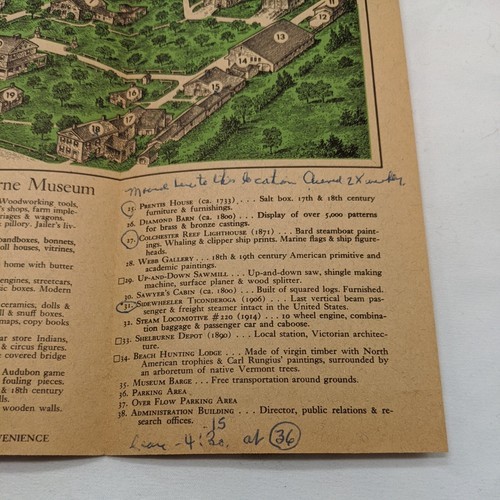 12
11
13
14
15
16
19
18
17
rne Museum
Woodworking tools,
's shops, farm imple-
riages & wagons.
c pillory. Jailer's liv-
bandboxes, bonnets,
oll houses, vitrines,
e home with butter
engines, streetcars,
ic boxes. Modern
ceramics, dolls &
ll & snuff boxes.
maps, copy books
ar store Indians,
& circus figures.
e covered bridge
Audubon game
fouling pieces.
& 18th century
lls.
wooden walls.
VENIENCE
Moved here to this location
25. Prentis House (ca. 1733) . . . Salt box. 17th & 18th century
furniture & furnishings.
26. Diamond Barn (ca. 1800) . . . Display of over 5,000 patterns
for brass & bronze castings.
27. Colchester Reef Lighthouse (1871) . . . Bard steamboat paint-
ings. Whaling & clipper ship prints. Marine flags & ship figure-
heads.
28. Webb Gallery . . . 18th & 19th century American primitive and
academic paintings.
29. Up-and-Down Sawmill . . . Up-and-down saw, shingle making
machine, surface planer & wood splitter.
30. Sawyer's Cabin (ca. 1800) . . . Built of squared logs. Furnished.
31. Sidewheeler Ticonderoga (1906) . . . Last vertical beam pas-
senger & freight steamer intact in the United States.
32. Steam Locomotive #220 (1914) . . . 10 wheel engine, combina-
tion baggage & passenger car and caboose.
33. Shelburne Depot (1890) . . . Local station, Victorian architec-
ture.
34. Beach Hunting Lodge . . . Made of virgin timber with North
American trophies & Carl Rungius' paintings, surrounded by
an arboretum of native Vermont trees.
35. Museum Barge . . . Free transportation around grounds.
36. Parking Area
37. Over Flow Parking Area
38. Administration Building . . . Director, public relations & re-
search offices.
15
Leave - 4: at 36